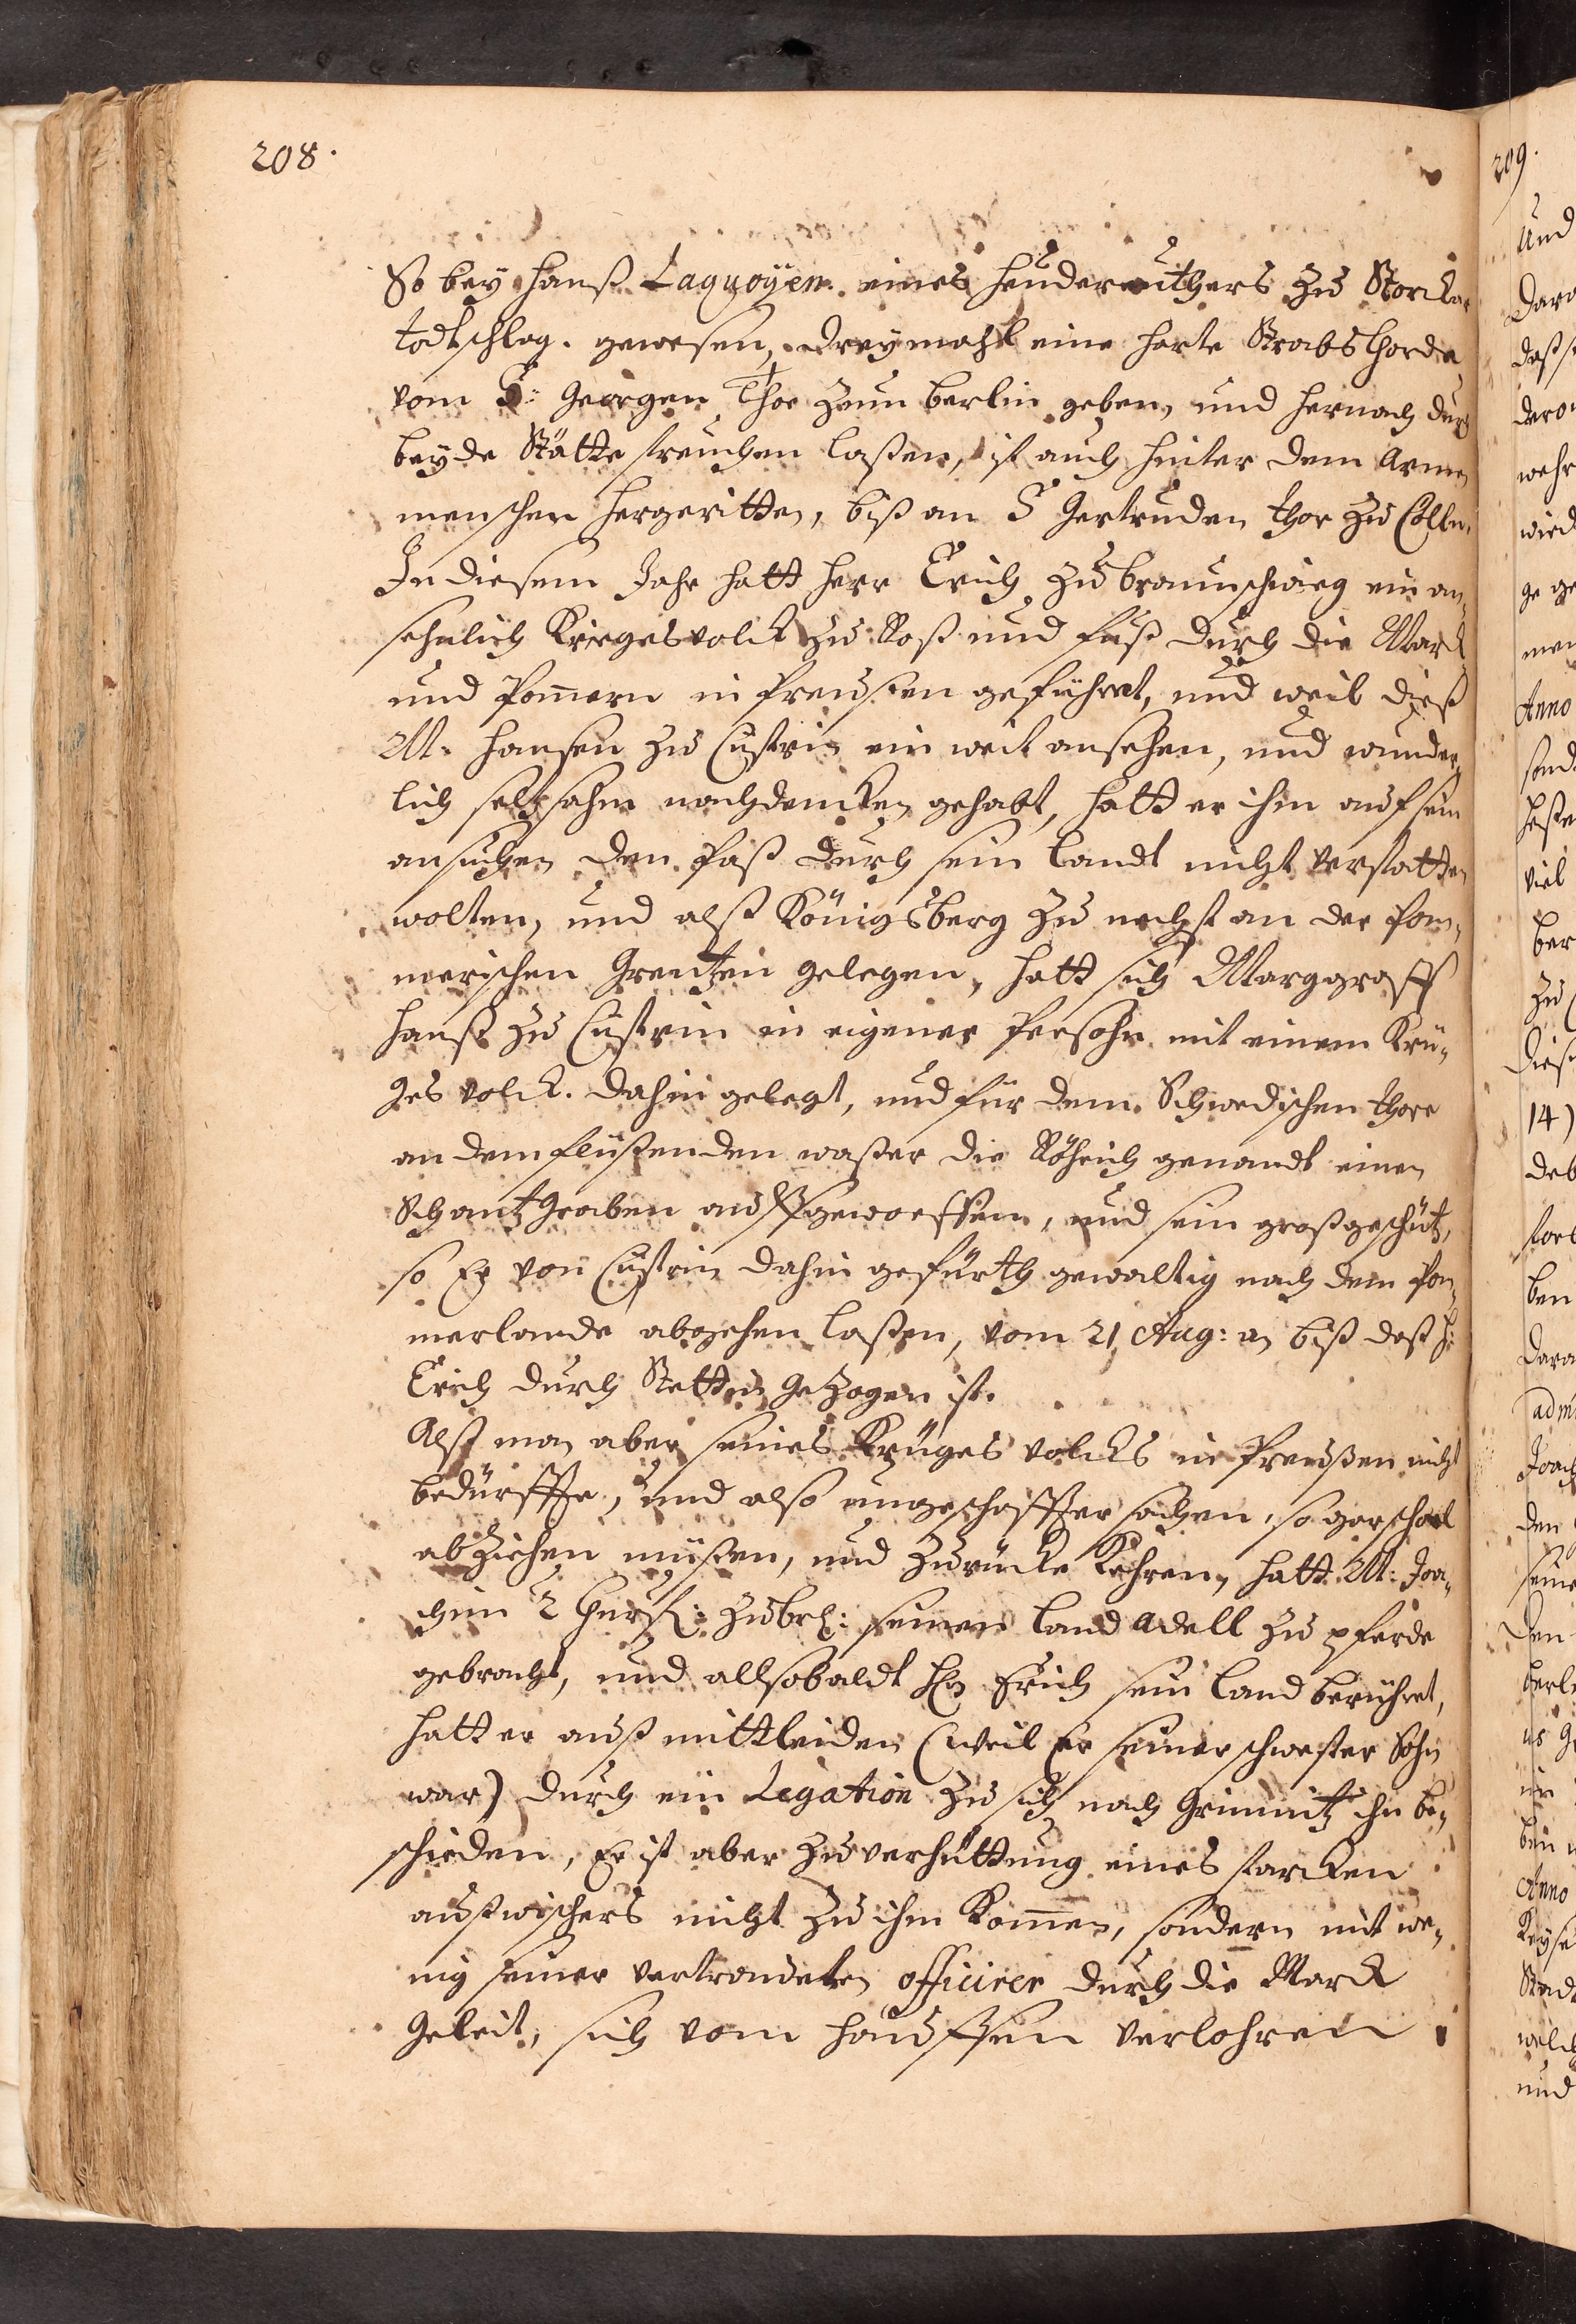 208.
So bey Hanß Laquoyen eines Heudereuthers zu Storckow
todtschlag. gewesen, dreymahl eine harte Strabs Chorda
vom S: Georgen Thor zum Berlin geben, und hernach durch
beyde Stätte streichen laßen, ist auch hinter dem armen
menschen hergeritten, biß an S Gertruden thor zu Cölln.
In diesem Jahr hatt Herr Erich zu braunschweig ein an,
sehnlich Kriegesvolck zu Roß und fuß durch die Marck
und Pomern in Preußen geführet, und weil dieß
M. Hansen zu Cüstrin ein weit ansehen, und wunder,
lich seltzahm nachdencken gehabt, hatt er ihm auf sein
ansuchen den paß durch sein landt nicht verstatten
wolten, und alß Königsberg zu nechst an der Pom,
merischen Grentzen gelegen, hatt sich Marggraff
Hanß zu Cüstrin in eigener Persohn mit einem Krie,
ges volck. dahin gelegt, und für dem Schwedischen thore
an dem flüßenden waßer die Röhrich genandt einen
Schantzgraben außgeworffen, und sein großgeschütz,
so Er von Cüstrin dahin gefürth gewaltig nach dem Pom,
merlande abgehen laßen, vom 21 Aug: an biß daß H:
Erich durch Stettin gezogen ist.
Alß man aber seines Krieges volcks in Preußen nicht
bedurffte, und also ungeschaffter sachen, so gar schoel
abziehen müßen, und zurücke Kehren, hatt M: Joa,
chim 2 Churf: zu br: seinen land adell zu pferde
gebracht, und allsobaldt H Erich sein land berühret,
hatt er auß mittleiden (weil Er seiner schwester Sohn
war) durch ein Legation zu sich nach Grimnitz ihn be,
schieden, Er ist aber zu verhüttung eines starcken
außwischers nicht zu ihm Kommen, sondern mit we,
nig seiner vertraudeten officirer durch die Marck
geleit, sich vom Hauffen verlohren
209.
Und
daß
wird
men
Anno
viel
ber
zu
14)
deb
ben
Joach
den
seine
Den
in
Anno
welch
und